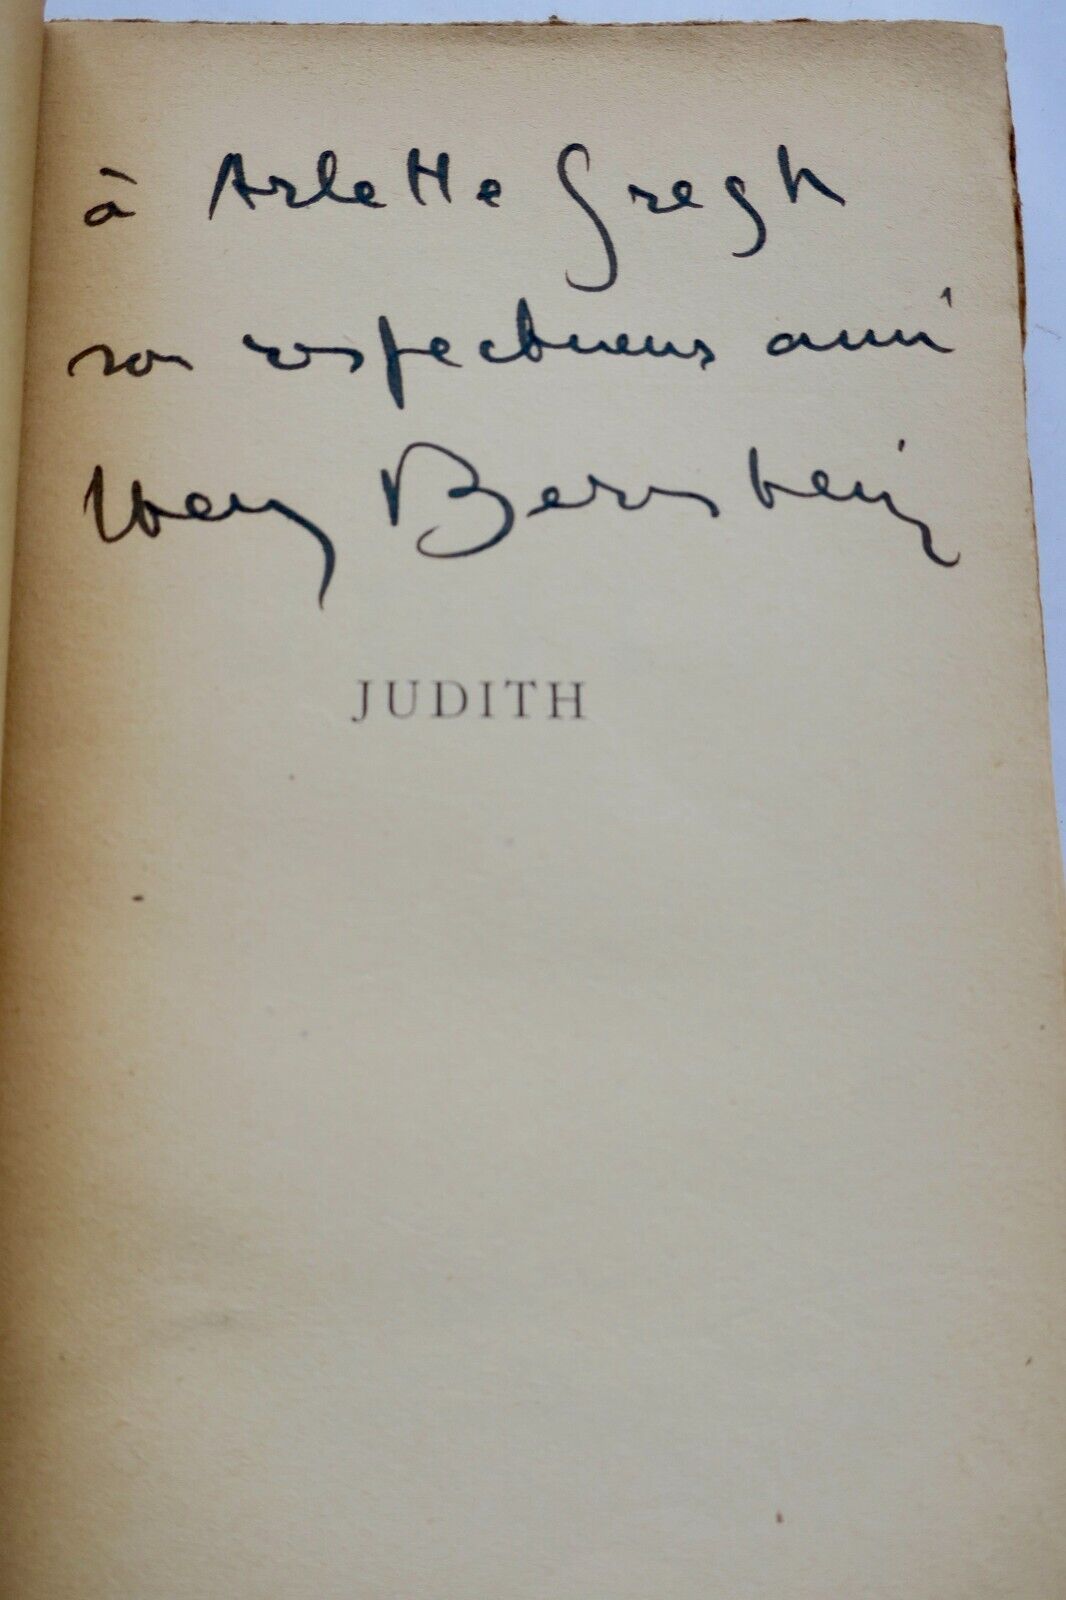 à Arlette Gregh
son respectueux ami
Henry Bernstein
JUDITH